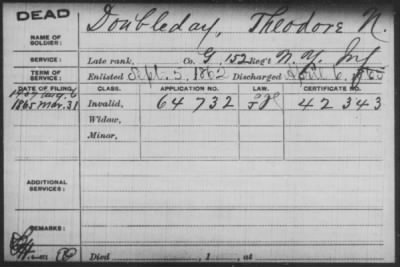 DEAD
NAME OF SOLDIER: Doubleday, Theodore N.
SERVICE: Late rank, Co. G, 152 Reg't N. Y. Inf
TERM OF SERVICE: Enlisted Sept. 5, 1862 Discharged April 6, 1865
DATE OF FILING. CLASS. APPLICATION NO. LAW. CERTIFICATE NO.
Aug. 6
1865 Mar. 31 Invalid, 64 732 42 343
Widow,
Minor,
ADDITIONAL SERVICES:
REMARKS:
Died , 1 , at